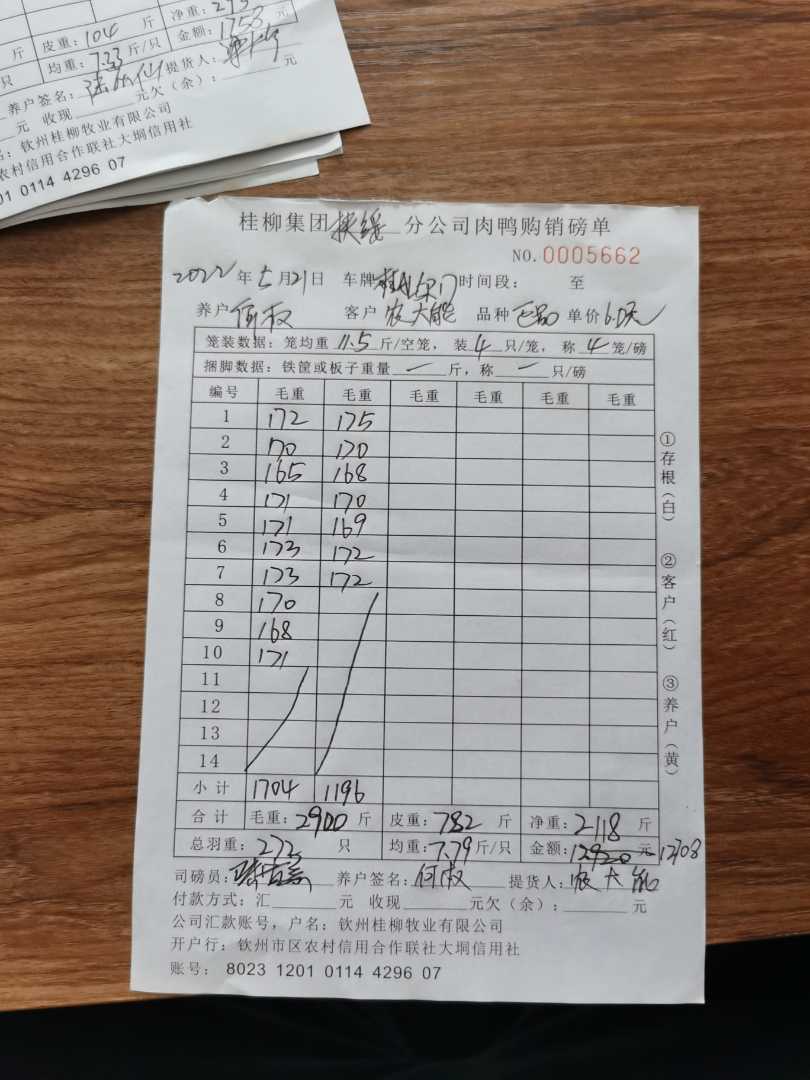 斤 皮重：104 斤 净重：293
只 均重：7.33 斤/只 金额：1758 元
养户签名： 提货人：
元 收现 元欠（余）： 元
名：钦州桂柳牧业有限公司
农村信用合作联社大垌信用社
01 0114 4296 07
桂柳集团扶绥分公司肉鸭购销磅单
NO. 0005662
2022年5月21日 车牌 时间段： 至
养户 何权 客户 农大能 品种 毛鸭 单价6.0元
笼装数据：笼均重 11.5 斤/空笼，装 4 只/笼，称 4 笼/磅
捆脚数据：铁筐或板子重量 一 斤，称 一 只/磅
编号 毛重 毛重 毛重 毛重 毛重 毛重
1 172 175
2 170 170
3 165 168
4 171 170
5 171 169
6 173 172
7 173 172
8 170
9 168
10 171
11
12
13
14
小计 1704 1196
合计 毛重：2900 斤 皮重：782 斤 净重：2118 斤
总羽重：272 只 均重：7.79 斤/只 金额：12920 元 12708
司磅员： 养户签名：何权 提货人：农大能
付款方式：汇 元 收现 元欠（余）： 元
公司汇款账号，户名：钦州桂柳牧业有限公司
开户行：钦州市区农村信用合作联社大垌信用社
账号：8023 1201 0114 4296 07
①存根（白）
②客户（红）
③养户（黄）